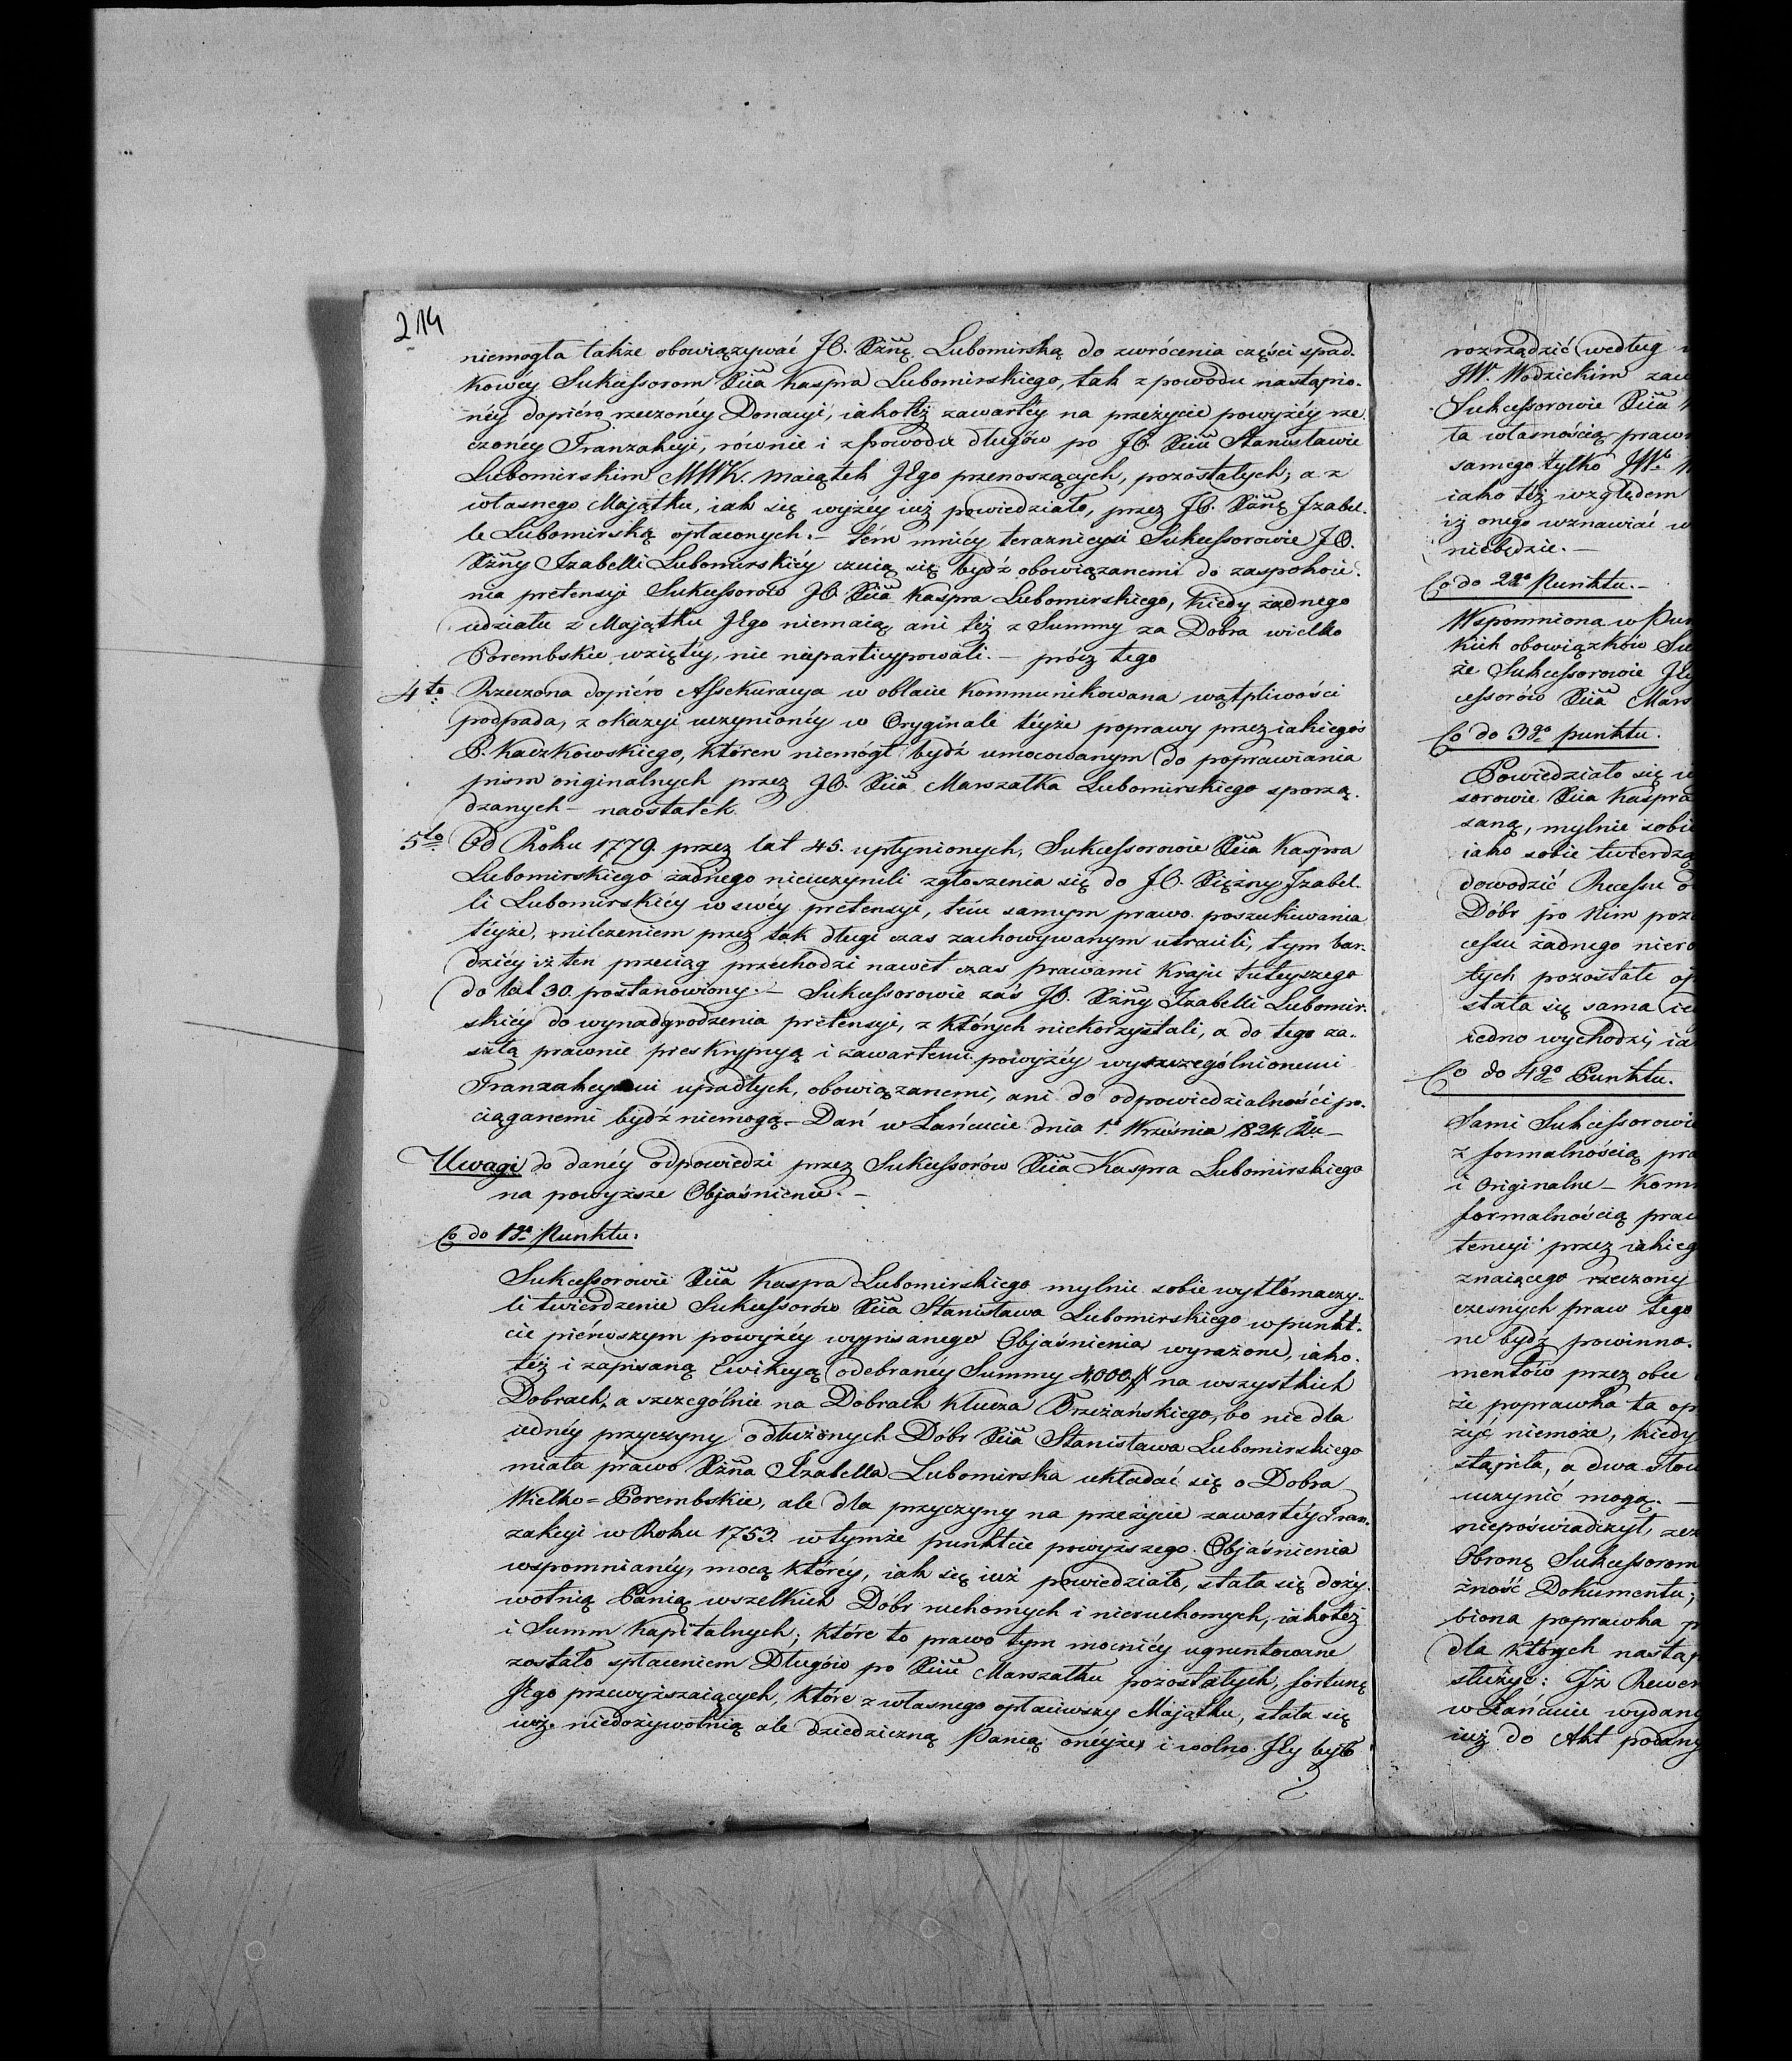 214
niemogła także obowiązywać JO. Xżnę Lubomirską do zwrócenia części spad-
kowéy Sukcessorom Xcia Kaspra Lubomirskiego, tak z powodu nastąpio-
néy dopiéro rzeczonéy Donacyi, iakoteż zawartéy na przeżycie powyżéy rze
czonéy Tranzakcyi, równie i z powodu długów po JO. Xciu Stanisławie
Lubomirskim MWK. maiątek Jego przenoszących, pozostałych; a z
własnego Majątku, iak się wyżéy iuż powiedziało, przez JO. Xżnę Izabel-
lę Lubomirską opłaconych.– tém mniéy teraznieysi Sukcessorowie JO.
Xżny Izabelli Lubomirskiéy czuią się bydź obowiązanemi do zaspokoie-
nia pretensyi Sukcessorów JO. Xcia Kaspra Lubomirskiego, kiedy żadnego
udziału z Majątku Jego niemaią, ani też z Summy za Dobra wielko
Porembskie wziętéy, nic nieparticypowali.– prócz tego
4to Rzeczona dopiéro Assekuracya w oblacie kommunikowana wątpliwości
podpada, z okazyi uczynionéy w Oryginale téyże poprawy przez iakiegoś
P. Kaczkowskiego, któren niemógł bydź umocowanym do poprawiania
pism originalnych przez JO. Xcia Marszałka Lubomirskiego sporzą-
dzanych – naostatek
5to Od Roku 1779. przez lat 45. upłynionych, Sukcessorowie Xcia Kaspra
Lubomirskiego żadnego nieuczynili zgłoszenia się do JO. Xiężny Izabel-
li Lubomirskiéy w swéy pretensyi, tém samym prawo poszukiwania
téyże, milczeniem przez tak długi czas zachowywanym utracili, tym bar-
dziéy iż ten przeciąg przechodzi nawet czas prawami Kraju tuteyszego
do lat 30. postanowiony.– Sukcessorowie zaś JO. Xżny Izabelli Lubomir-
skiéy do wynadgrodzenia pretensyi, z których niekorzystali, a do tego za-
szłą prawnie preskrypcyą i zawartemi powyżéy wyszczególnionemi
Tranzakcyami upadłych, obowiązanemi, ani do odpowiedzialności po-
ciąganemi bydź niemogą.– Dań w Łańcucie dnia 1o Września 1824. Ru.–
Uwagi do danéy odpowiedzi przez Sukcessorów Xcia Kaspra Lubomirskiego
na powyższe Objaśnienie.–
Co do 1go Punktu.
Sukcessorowie Xcia Kaspra Lubomirskiego mylnie sobie wytłómaczy-
li twierdzenie Sukcessorów Xcia Stanisława Lubomirskiego w punkt-
cie piérwszym powyżéy wypisanego Objaśnienia wyrażone, iako-
też i zapisaną Ewikcyą odebranéy Summy 4,000 # na wszystkich
Dobrach, a szczególnie na Dobrach Klucza Brzeżańskiego, bo nie dla
iednéy przyczyny odłużonych Dóbr Xcia Stanisława Lubomirskiego
miała prawo Xżna Izabella Lubomirska układać się o Dobra
Wielko=Porembskie, ale dla przyczyny na przeżycie zawartéy Tran-
zakcyi w Roku 1753. w tymże punktcie powyższego Objaśnienia
wspomnianéy, mocą któréy, iak się iuż powiedziało, stała się doży-
wotnią Panią wszelkich Dóbr ruchomych i nieruchomych, iakoteż
i Summ Kapitalnych; które to prawo tym mocniéy ugruntowane
zostało spłaceniem Długów po Xciu Marszałku pozostałych, fortunę
Jego przewyższaiących, które z własnego opłaciwszy Majątku, stała się
iuż niedożywotnią ale dziedziczną Panią onéyże, i wolno Jéy było
rozrządzić (według
JW. Wodzickim
Sukcessorowie Xcia
ta własnością
samego tylko JW.
iako téż względem
iż onego wznawiać
niebędzie.–
Co do 2go Punktu.–
Wspomniona w
kich obowiązków
że Sukcessorowie
cessorów Xcia
Co do 3go punktu.
Powiedziało się
sorowie Xcia Kaspra
saną, mylnie sobie
iako sobie twierdzą
dowodzić Recessu
Dóbr po Nim
cessu żadnego
tych pozostałe
stała się sama
iedno wychodzi,
Co do 4go Punktu.
Sami Sukcessorowie
z formalnością
i Originalne –
formalnością
tencyi przez
znaiącego rzeczony
czesnych praw tego
ne bydź powinno.
mentów przez obie
że poprawka ta
żyć niemoże, kiedy
stąpiła, a dwa
uczynić mogą.–
niepoświadczył,
Obroną Sukcessorom
żność Dokumentu;
biona poprawka
dla których
służyć: Iż
w Łańcucie
iuż do Akt